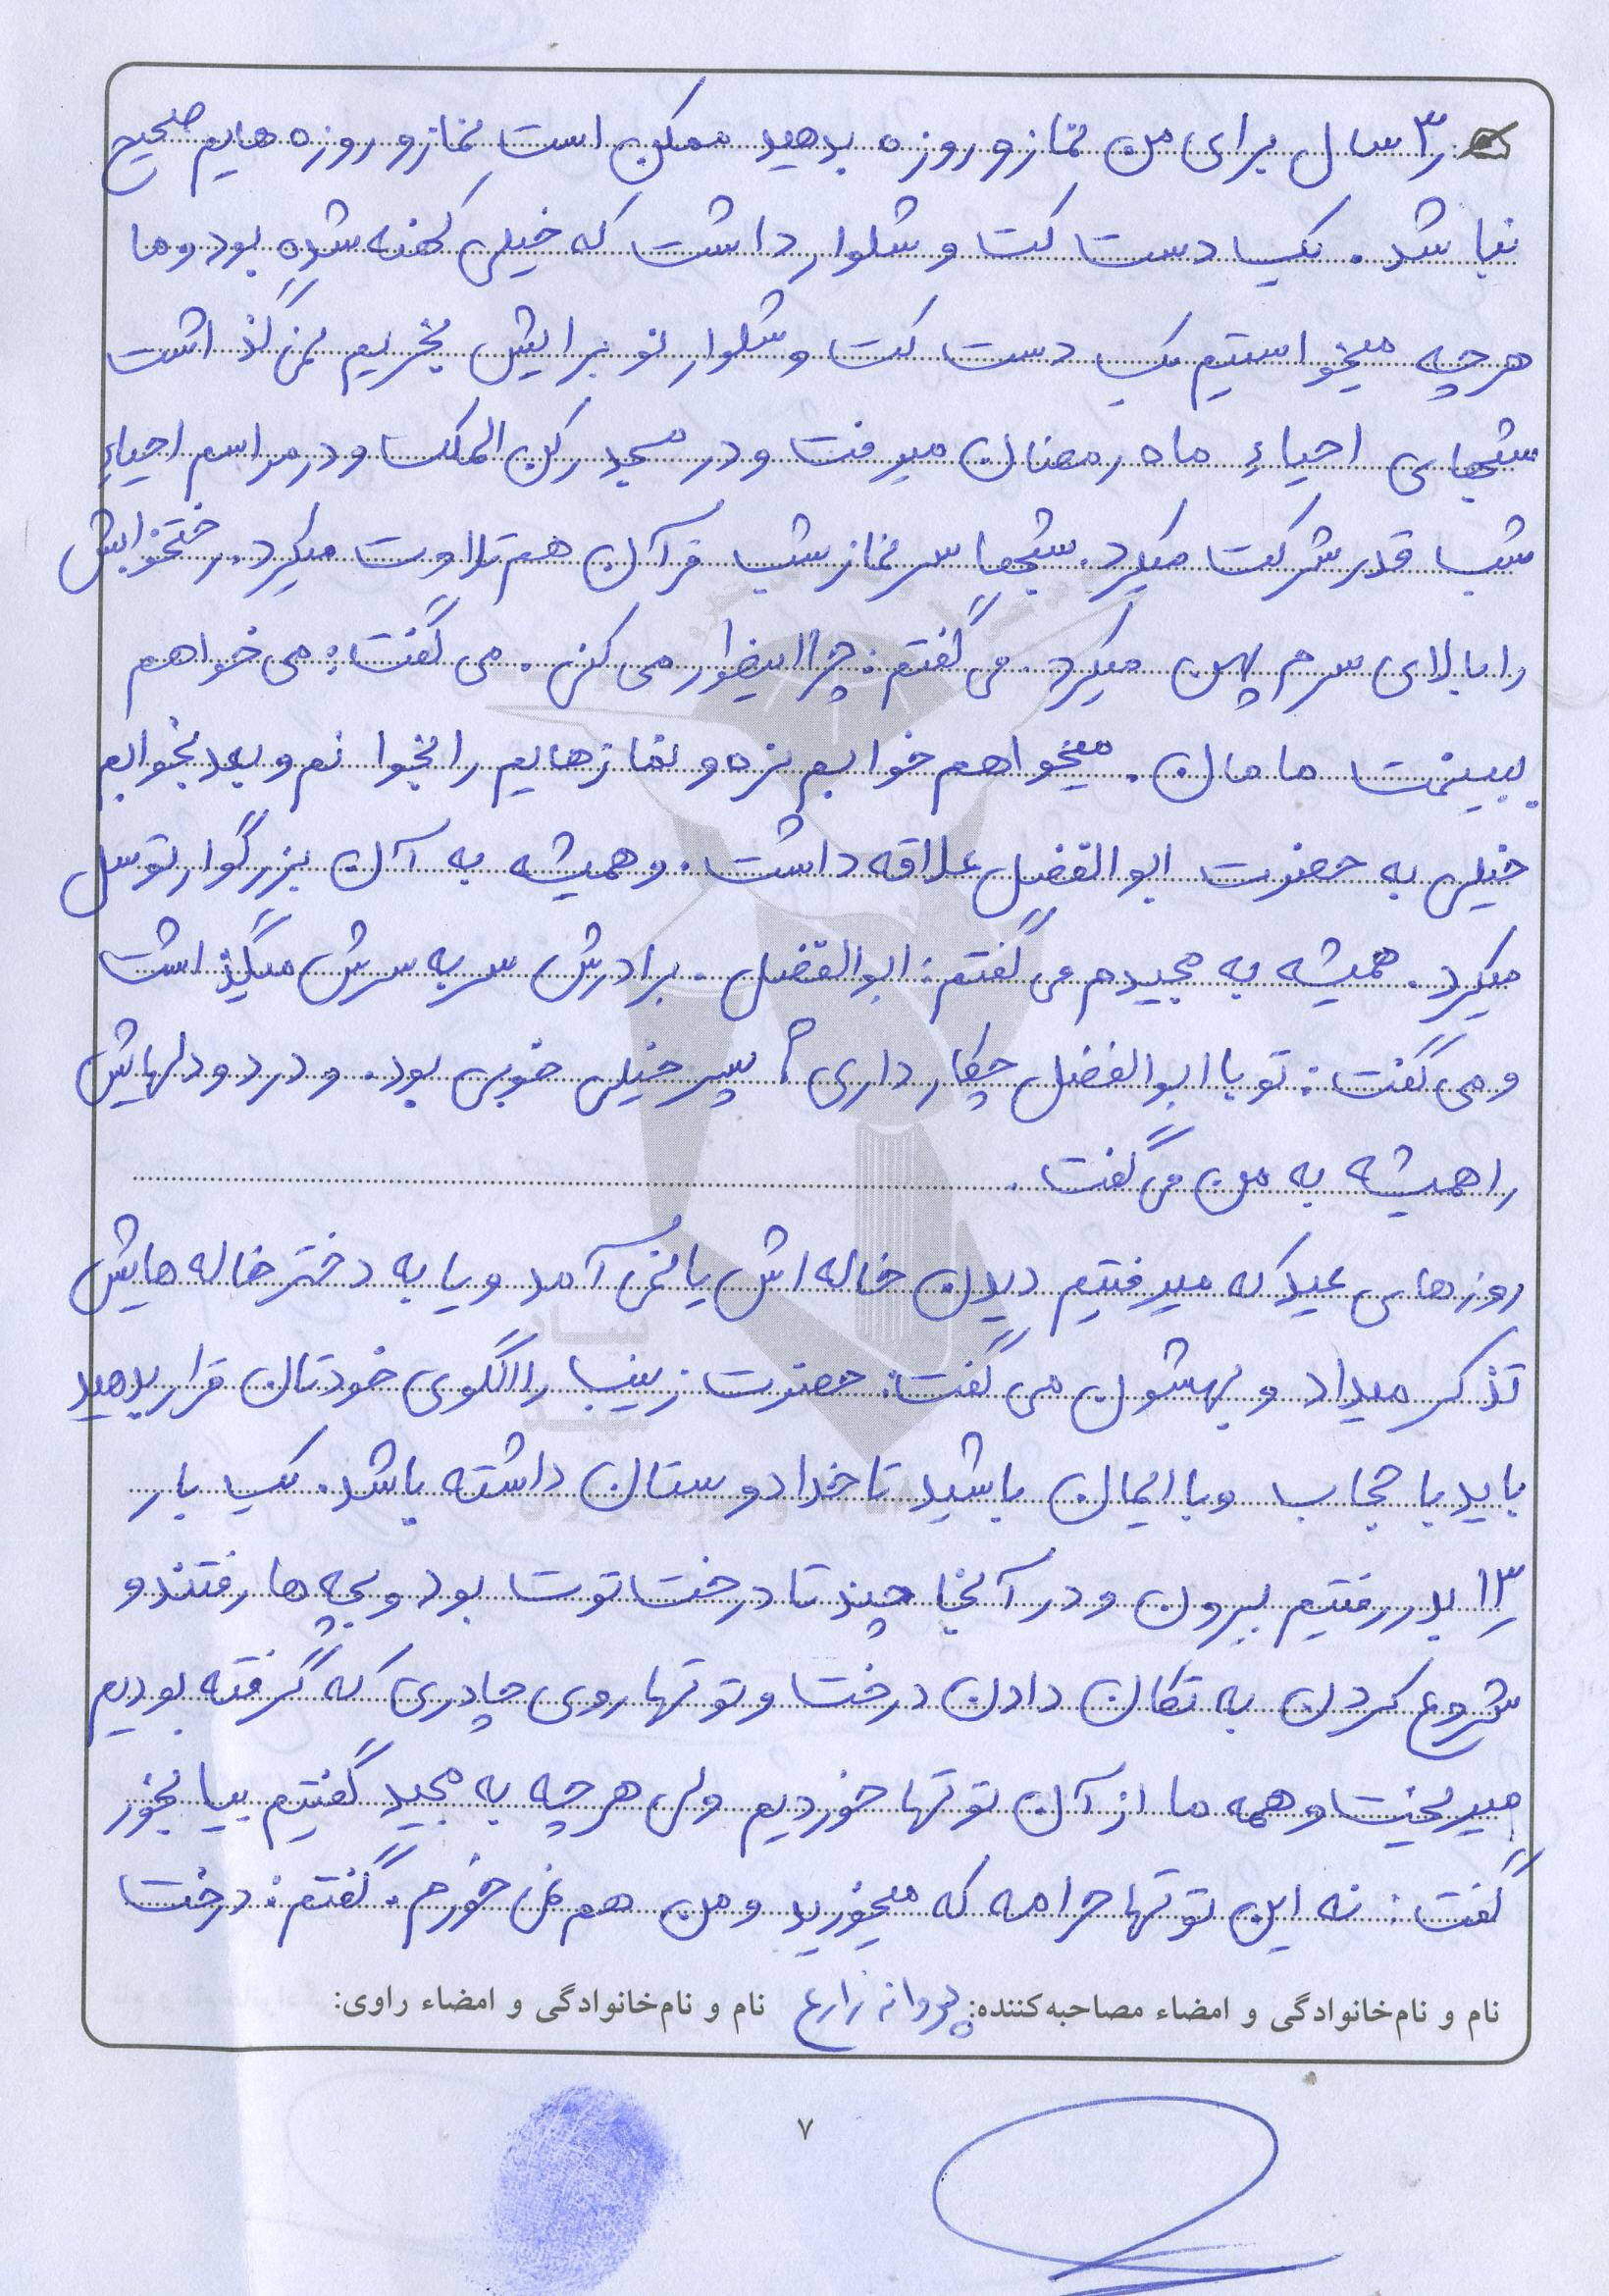 ۳ سال برای من نماز و روزه بدهید ممکن است نماز و روزه هایم صحیح
نباشد. یک دست کت و شلوار داشت که خیلی کهنه شده بود و ما
هرچه میخواستیم یک دست کت و شلوار نو برایش بخریم نمی گذاشت
شبهای احیاء ماه رمضان میرفت و در مسجد رکن الملک و در مراسم احیاء
شب قدر شرکت میکرد. شبها سر نماز شب قرآن هم تلاوت میکرد. رختخوابش
را بالای سرم پهن میکرد. می گفتم: چرا اینطور می کنی. می گفت: می خواهم
ببینمت مامان. میخواهم خوابم نره و نمازهایم را بخوانم و بعد بخوابم
خیلی به حضرت ابوالفضل علاقه داشت. و همیشه به آن بزرگوار توسل
میکرد. همیشه به مجیدم می گفتم: ابوالفضل. برادرش سر به سرش میگذاشت
و می گفت: تو با ابوالفضل چکار داری؟ پسر خیلی خوبی بود. و درد و دلهایش
را همیشه به من می گفت.
روزهای عید که میرفتیم دیدن خاله اش یا نمی آمد و یا به دختر خاله هایش
تذکر میداد و بهشون می گفت: حضرت زینب را الگوی خودتان قرار بدهید
باید با حجاب و با ایمان باشید تا خدا دوستان داشته باشد. یک بار
۱۳ بدر رفتیم بیرون و در آنجا چند تا درخت توت بود و بچه ها رفتند و
شروع کردن به تکان دادن درخت و توتها روی چادری که گرفته بودیم
میریخت و همه ما از آن توتها خوردیم ولی هرچه به مجید گفتیم بیا بخور
گفت: نه این توتها حرامه که میخورید و من هم نمی خورم. گفتم: درخت
نام و نام‌خانوادگی و امضاء مصاحبه‌کننده: پروانه زارع نام و نام‌خانوادگی و امضاء راوی:
۷